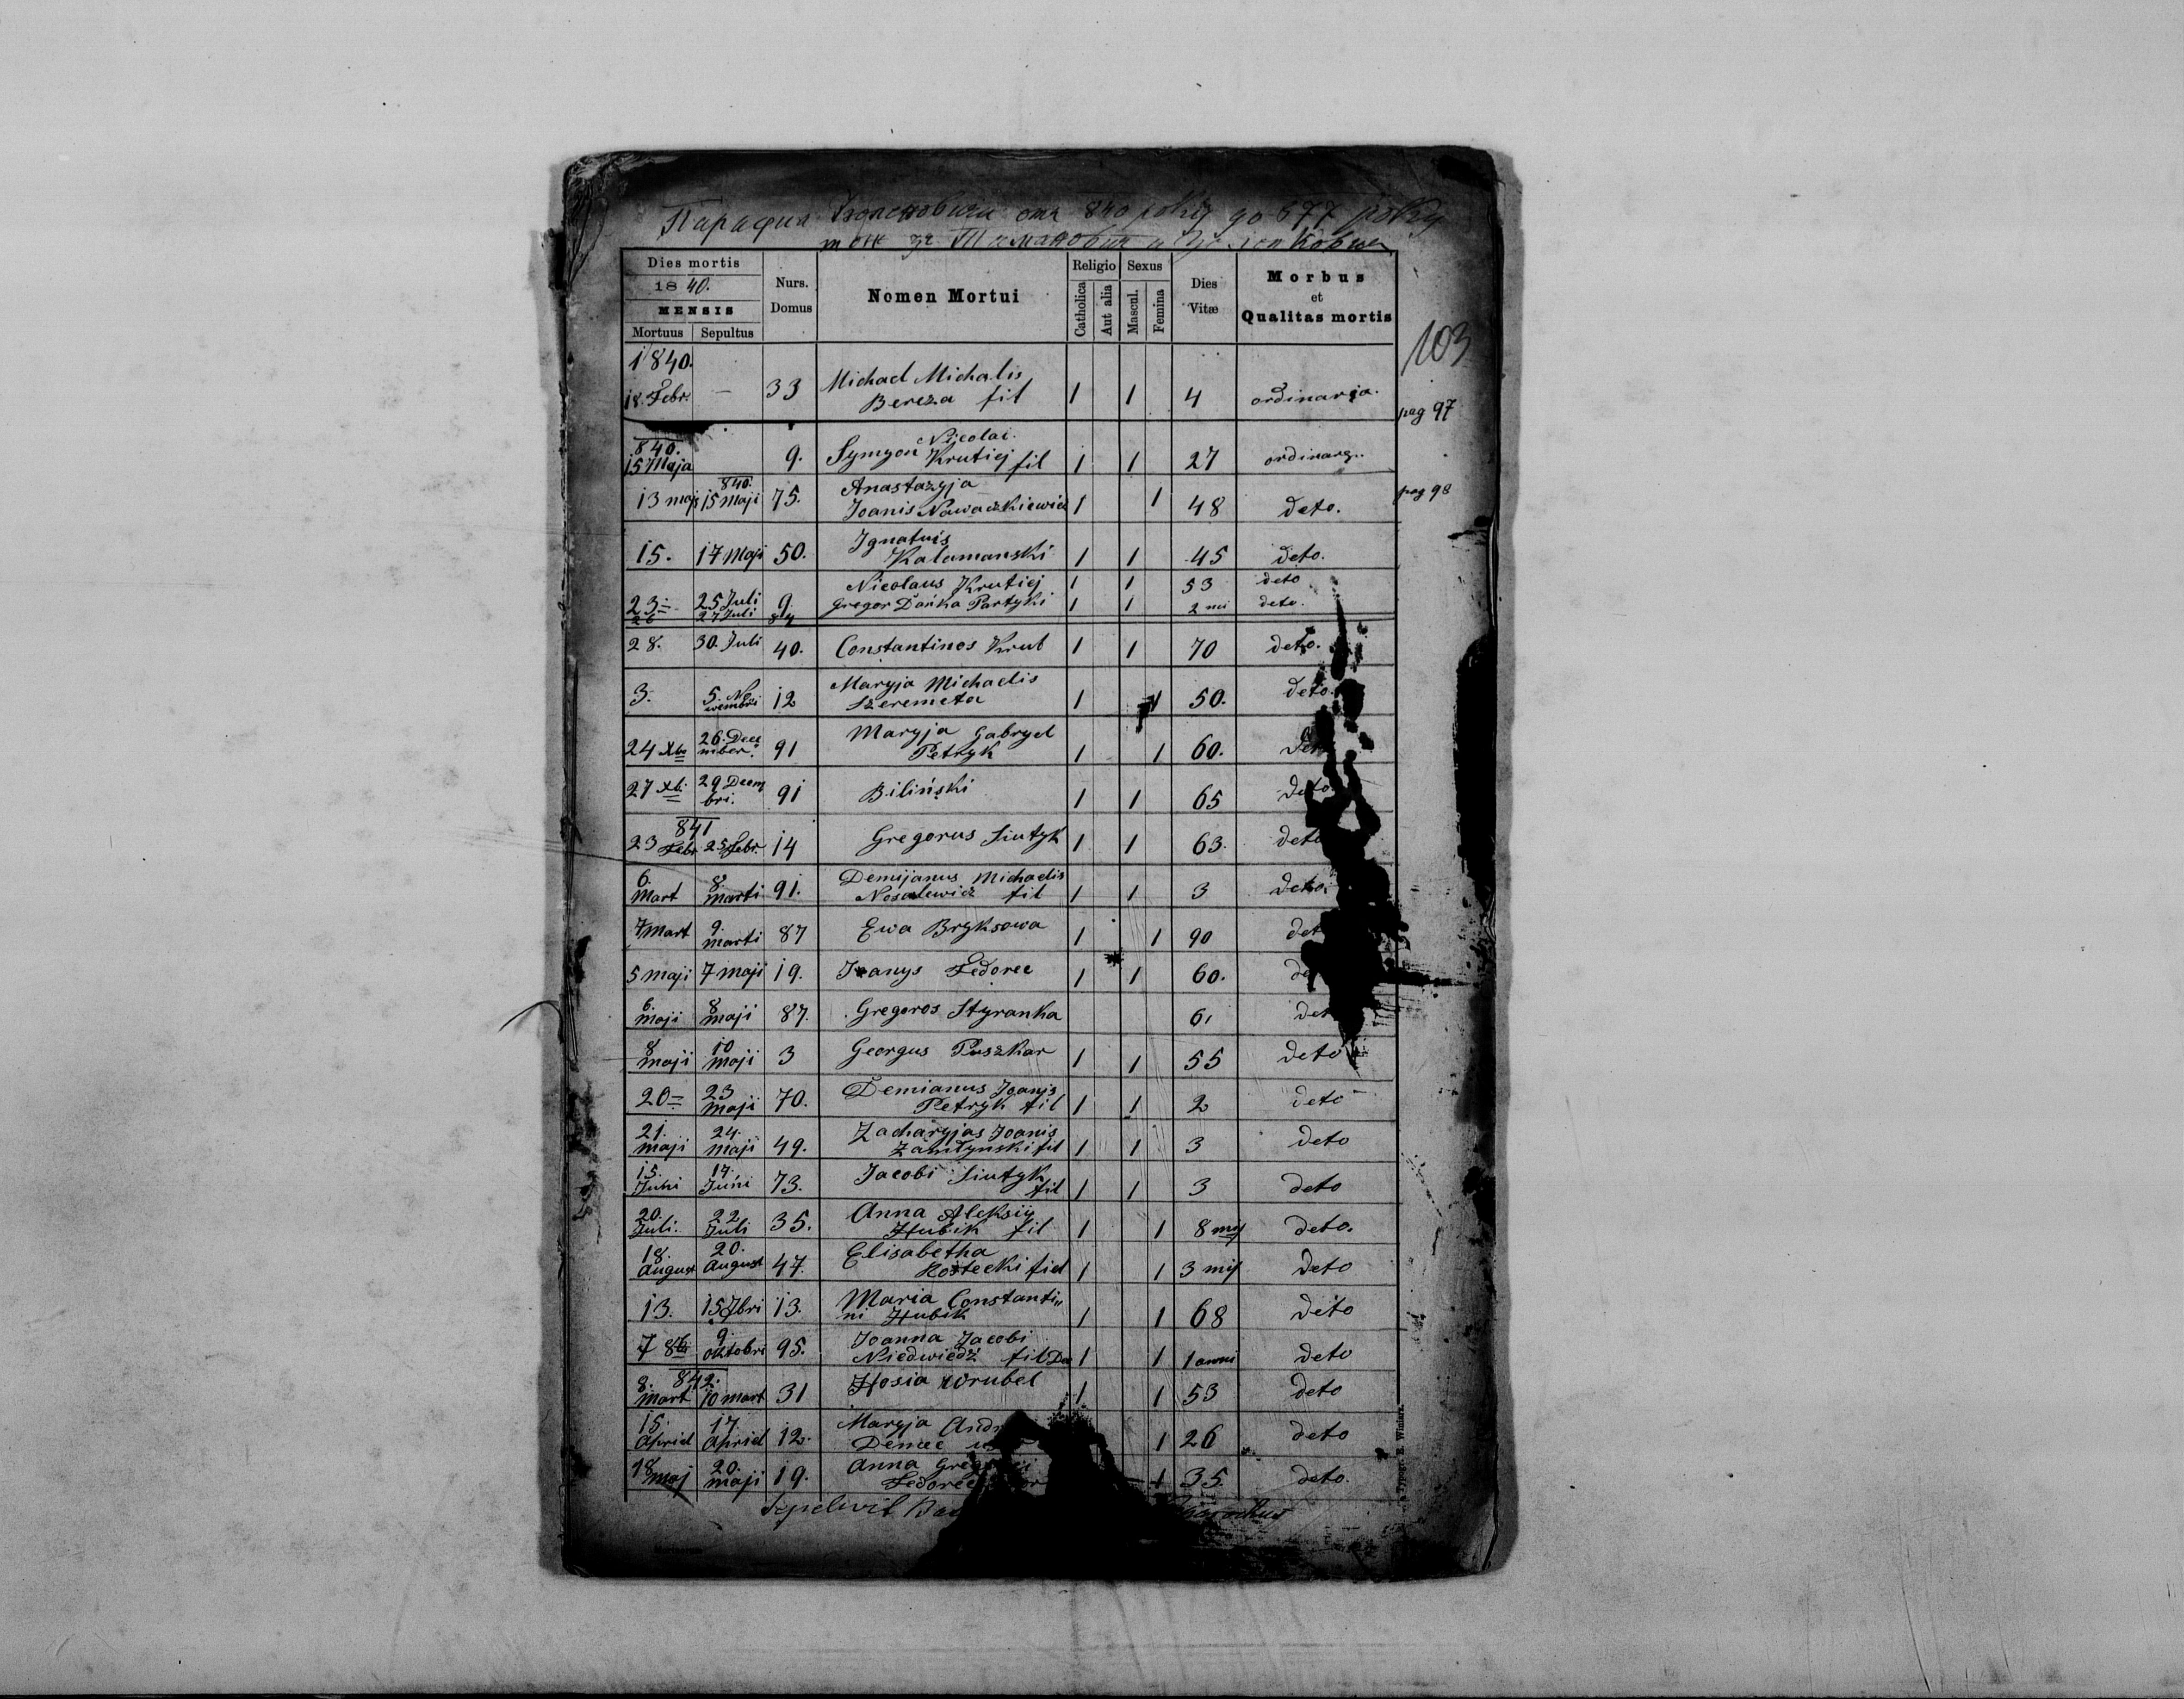 Парафия от 840 року до 877 року
Dies mortis
1840.
MENSIS
Mortuus Sepultus
Nurs. Domus
Nomen Mortui
Religio
Catholica Aut alia
Sexus
Mascul. Femina
Dies Vitæ
Morbus et Qualitas mortis
103
1840.
18. Febr. — 33 Michael Michalis
Bereza fil 1 1 4 ordinarja.
pag 97
840.
15 Maja 9. Symyon Nicolai
Krutiej fil 1 1 27 ordinarg..
840.
13 maj 15 Maji 75. Anastazyja
Joanis Nawaczkiewicz 1 1 48 deto.
pag 98
15. 17 Maji 50. Ignatuis
Kalamanski 1 1 45 deto.
23 25 Juli 9. Nicolaus Krutiej 1 1 53 deto
26 27 Juli 84 Gregor Dańka Partyki 1 1 2 mi deto.
28. 30. Juli 40. Constantinos Krub 1 1 70 deto.
3. 5. No
wembri 12 Maryja Michaelis
Szeremeta 1 1 50. deto.
24 Xbr 26. Dece
mber. 91 Maryja Gabryel
Petryk 1 1 60.
27 Xbi 29 Decem
bri. 91 Biliński 1 1 65 deto
841
23 Febr 25 Febr. 14 Gregorus Siutyk 1 1 63. deto
6. Mart 8. Marti 91. Demijanus Michaelis
Nosalewicz fil 1 1 3 deto.
7 Mart 9. Marti 87 Ewa Bryksowa 1 1 90 det
5 maji 7 maji 19. Iwanys Fedorec 1 1 60. de
6. maji 8 maji 87. Gregoros Styranka 61 det
8 maji 10 maji 3 Georgus Puszkar 1 1 55 deto
20 23 maji 70. Demianus Joanis
Petryk fil 1 1 2 deto
21. maji 24. maji 49. Zacharyjas Joanis
Zamłynski fil 1 1 3 deto
15. Juni 17. Juni 73. Jacobi Siutyk
fil 1 1 3 deto
20. Juli. 22 Juli 35. Anna Aleksiy
Hubik fil 1 1 8 my deto.
18. August 20. August 47. Elisabetha
Kostecki fiel 1 1 3 mij deto
13. 15 7bri 13. Maria Constanti„
ni Hubik 1 1 68 deto
7 8bi 9. oktobri 95. Joanna Jacobi
Niedwiedź fil 1 1 1 anni deto
842.
8. Mart 10 mart 31 Hosia Wrubel 1 1 53 deto
15. Apriel 17. Apriel 12. Maryja Andr
Demec 1 26 deto
18 maj 20. maji 19. Anna Greg
Fedorec 1 35. deto.
Sepelivit parochus
a Typogr. E. Winiarz.